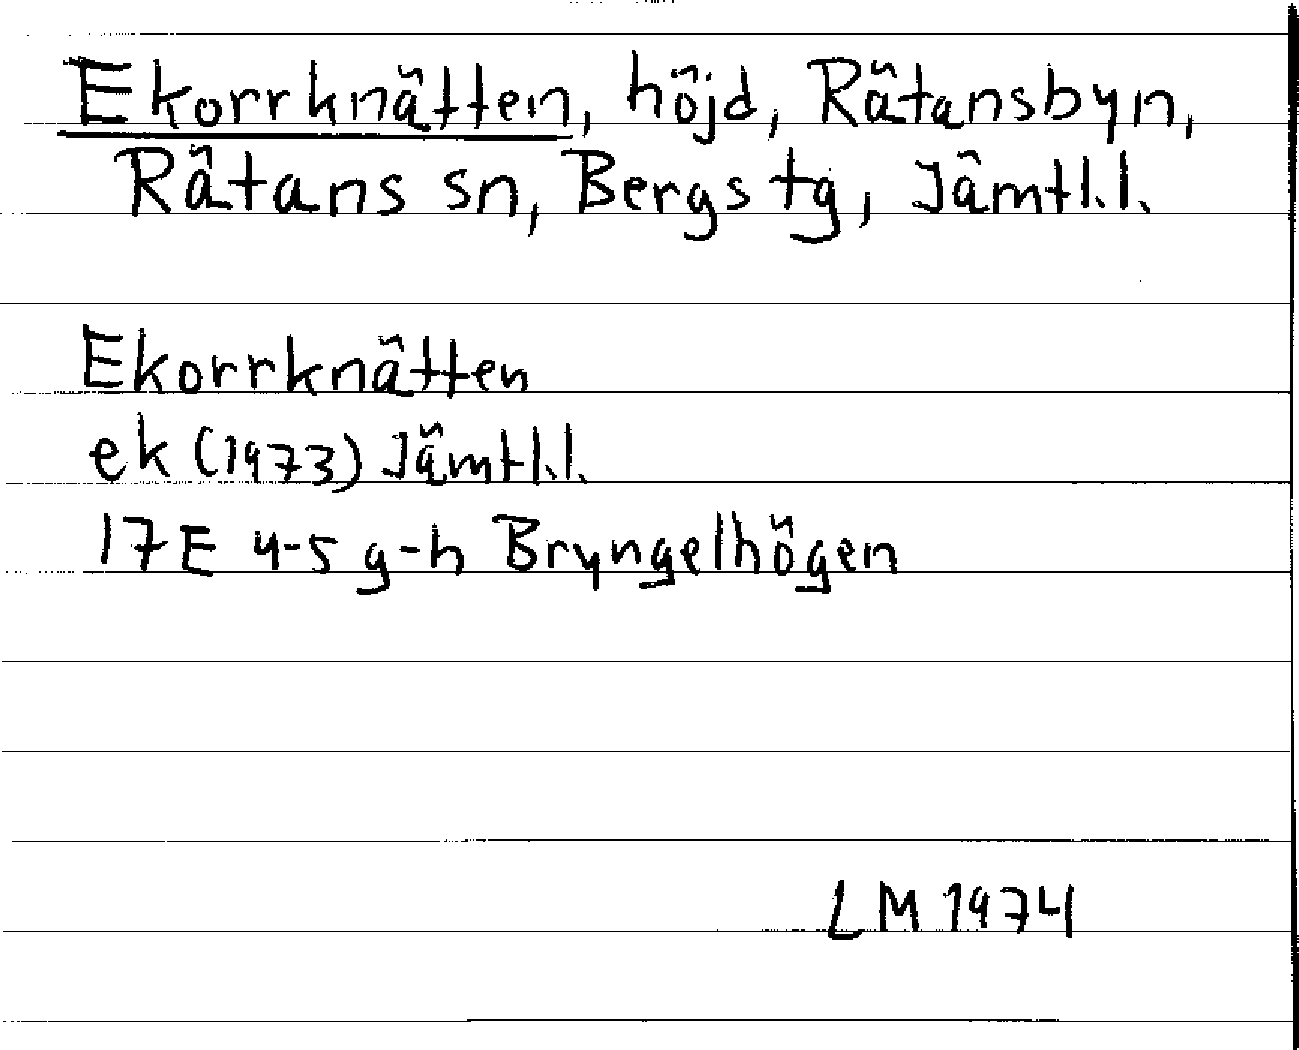 Ekorrknätten, höjd, Rätansbyn,
Rätans sn, Bergs tg, Jämtl.l.
Ekorrknätten
ek (1973) Jämtl.l.
17E 4-5 g-h Bryngelhögen
LM 1974